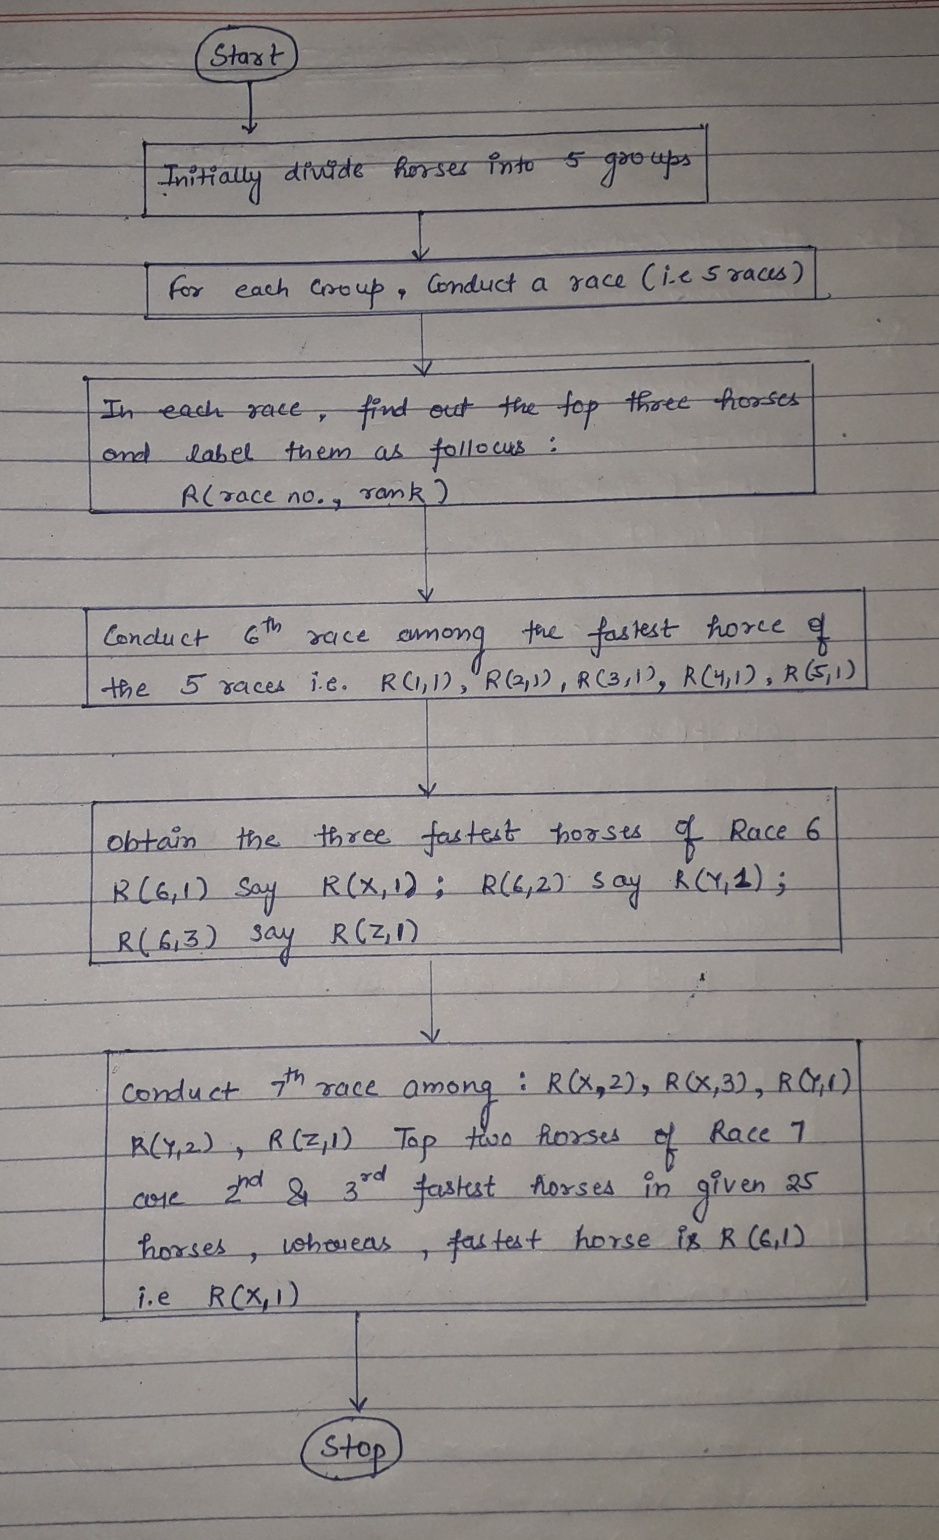 Start
Initially divide horses into 5 groups
for each Group, Conduct a race (i.e 5 races)
In each race, find out the top three horses
and label them as follows :
R(race no., rank)
Conduct 6th race among the fastest horce of
the 5 races i.e. R(1,1), R(2,1), R(3,1), R(4,1), R(5,1)
obtain the three fastest horses of Race 6
R(6,1) say R(X,1) ; R(6,2) say R(Y,1) ;
R(6,3) say R(Z,1)
Conduct 7th race among : R(X,2), R(X,3), R(Y,1)
R(Y,2) , R(Z,1) Top two horses of Race 7
are 2nd & 3rd fastest horses in given 25
horses , whereas , fastest horse is R(6,1)
i.e R(X,1)
Stop